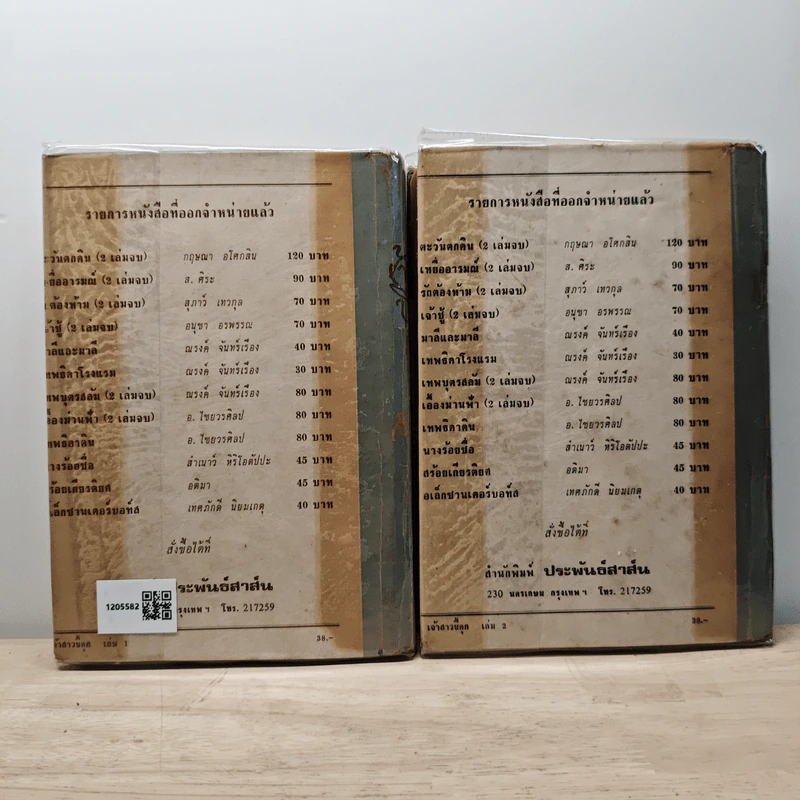 รายการหนังสือที่ออกจำหน่ายแล้ว
ะวันตกดิน (2 เล่มจบ) กฤษณา อโศกสิน 120 บาท
หยื่ออารมณ์ (2 เล่มจบ) ส. ศิระ 90 บาท
ต้องห้าม (2 เล่มจบ) สุภาว์ เทวกุล 70 บาท
จ้าชู้ (2 เล่มจบ) อนุชา อรพรรณ 70 บาท
าลีและมาลี ณรงค์ จันทร์เรือง 40 บาท
ทพธิดาโรงแรม ณรงค์ จันทร์เรือง 30 บาท
ทพบุตรสลัม (2 เล่มจบ) ณรงค์ จันทร์เรือง 80 บาท
อื้องม่านฟ้า (2 เล่มจบ) อ. ไชยวรศิลป 80 บาท
ทพธิดาดิน อ. ไชยวรศิลป 80 บาท
างร้อยชื่อ สำเนาว์ หิริโอตัปปะ 45 บาท
ร้อยเกียรติยศ อติมา 45 บาท
เล็กซานเดอร์บอทส์ เทศภักดิ์ นิยมเกตุ 40 บาท
สั่งซื้อได้ที่
ระพันธ์สาส์น
รุงเทพ ฯ โทร. 217259
1205582
จ้าสาวขี้คุก เล่ม 1 38.-
รายการหนังสือที่ออกจำหน่ายแล้ว
ตะวันตกดิน (2 เล่มจบ) กฤษณา อโศกสิน 120 บาท
เหยื่ออารมณ์ (2 เล่มจบ) ส. ศิระ 90 บาท
รักต้องห้าม (2 เล่มจบ) สุภาว์ เทวกุล 70 บาท
เจ้าชู้ (2 เล่มจบ) อนุชา อรพรรณ 70 บาท
มาลีและมาลี ณรงค์ จันทร์เรือง 40 บาท
เทพธิดาโรงแรม ณรงค์ จันทร์เรือง 30 บาท
เทพบุตรสลัม (2 เล่มจบ) ณรงค์ จันทร์เรือง 80 บาท
เอื้องม่านฟ้า (2 เล่มจบ) อ. ไชยวรศิลป 80 บาท
เทพธิดาดิน อ. ไชยวรศิลป 80 บาท
นางร้อยชื่อ สำเนาว์ หิริโอตัปปะ 45 บาท
สร้อยเกียรติยศ อติมา 45 บาท
อเล็กซานเดอร์บอทส์ เทศภักดิ์ นิยมเกตุ 40 บาท
สั่งซื้อได้ที่
สำนักพิมพ์ ประพันธ์สาส์น
230 นครเกษม กรุงเทพ ฯ โทร. 217259
เจ้าสาวขี้คุก เล่ม 2 38.-